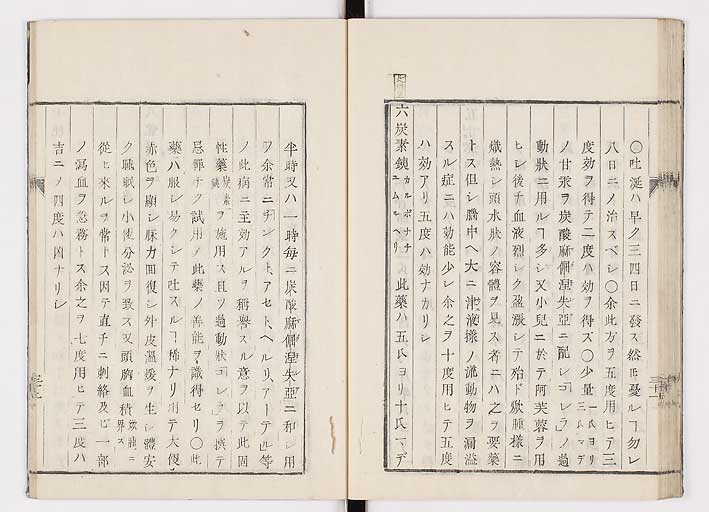 〇吐涎ハ早ク三四日ニ發ス然𪜈憂ルヿ勿レ
八日ニメ治スベシ〇余此方ヲ五度用ヒテ三
度効ヲ得テ二度ハ効ヲ得ズ〇少量一氏ヨリ三氏マデ
ノ甘汞ヲ炭酸麻倔涅失亞ニ配シコレラノ過
動狀ニ用ルヿ多シ又小兒ニ於テ阿芙蓉ヲ用
ヒシ後チ血液烈シク盈漲シテ殆ド焮腫樣ニ
熾熱シ頭水狀ノ容體ヲ見ス者ニハ之ヲ要藥
トス但シ膓中ヘ大ニ津液樣ノ流動物ヲ漏溢
スル症ニハ効能少シ余之ヲ十度用ヒテ五度
ハ効アリ五度ハ効ナカリシ
六炭素銕カルボナチニムルヘリ此藥ハ五氏ヨリ十氏マデ
半時又ハ一時每ニ炭酸麻倔涅失亞ニ和シ用
ヲ余常ニチンクト、アセト、ヘルリ、アーテル等
ノ此病ニ主効アルヲ稱譽スル意ヲ以テ此固
性藥炭素銕ヲ施用ス且ツ過動狀コレラヲ撰テ
忌憚ナク試用メ此藥ノ善能ヲ識得セリ〇此
藥ハ服シ易クシテ吐スルヿ稀ナリ而テ大便
赤色ヲ顯シ脉力回復シ外皮溫煖ヲ生シ體安
ク睡眠シ小便分泌ヲ致ス又頭胸血積焮腫ニ界ス
從ヒ來ルヲ常トス因テ直チニ刺絡及ビ一部
ノ瀉血ヲ急務トス余之ヲ七度用ヒテ三度ハ
吉ニメ四度ハ凶ナリシ